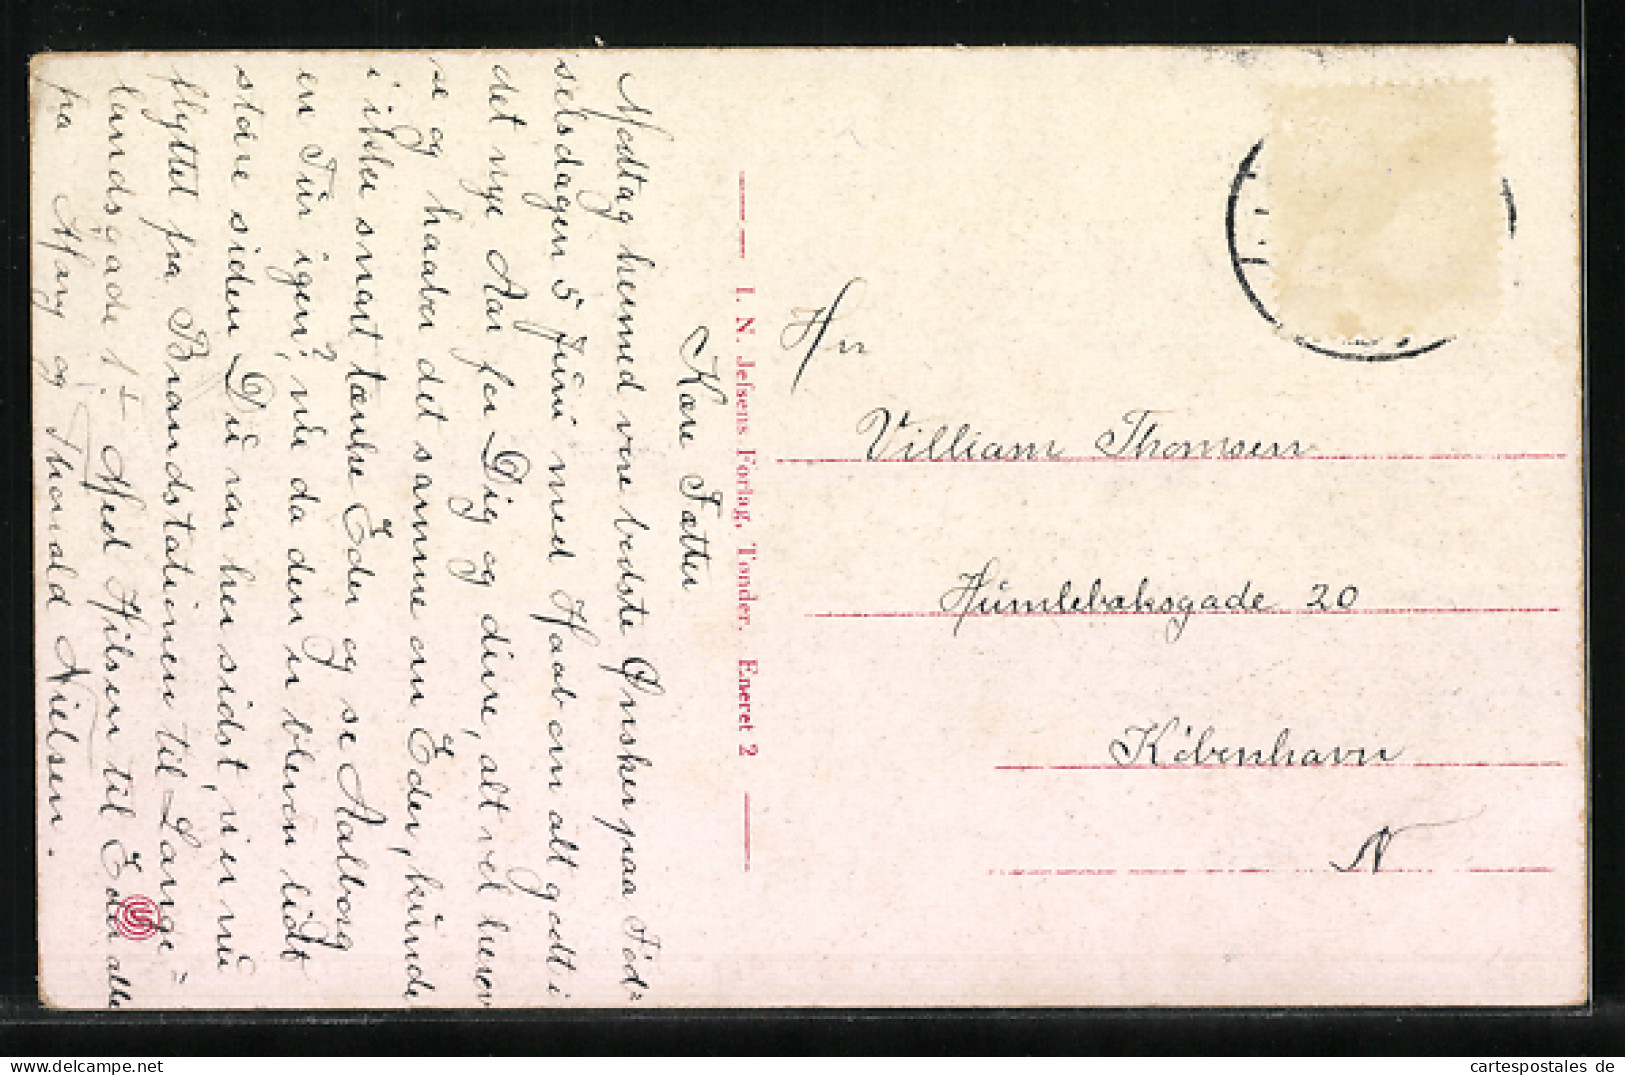 Kære Fætter
Modtag herved vore bedste Ønsker paa Fød=
selsdagen 5 Juni med Haab om alt godt i
det nye Aar for Dig og dine, alt vel herov
se og haaber det samme om Eder, kunde
i ikke snart tænke Eder og se Aalborg
en Tur igen?, nu da den er bleven lidt
støre siden Du var her sidst, vi er nu
flyttet fra Brandstationen til Lange=
landsgade 1 Med Hilsen til Eder alle
fra Mary og Thorvald Nielsen.
I. N. Jefsens Forlag, Tønder. Eneret 2
Hr
Villiam Thomsen
Humlebæksgade 20
København
N
cartespostales de